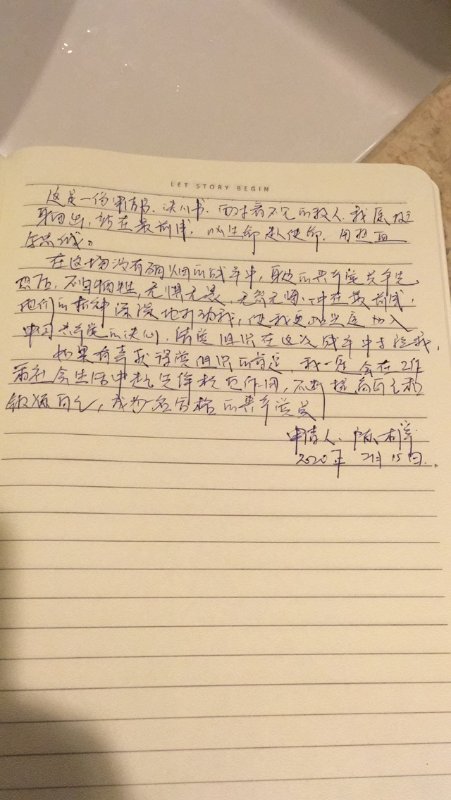 LET STORY BEGIN
这是一份申请书、决心书。面对看不见的敌人,我愿挺
身而出,站在最前沿,以生命赴使命,用热血
铸忠诚。
在这场没有硝烟的战斗中,身边的共产党员率先
垂范,不怕牺牲,无惧无畏,无怨无悔,冲在最前线,
他们的精神深深地打动我,使我更加坚定加入
中国共产党的决心。请党组织在这次战斗中考验我,
如果有幸获得党组织的肯定,我一定会在工作
和社会生活中起先锋模范作用,不断提高自己和
锻炼自己,成为名合格的共产党员
申请人:
2020年 2月15日.